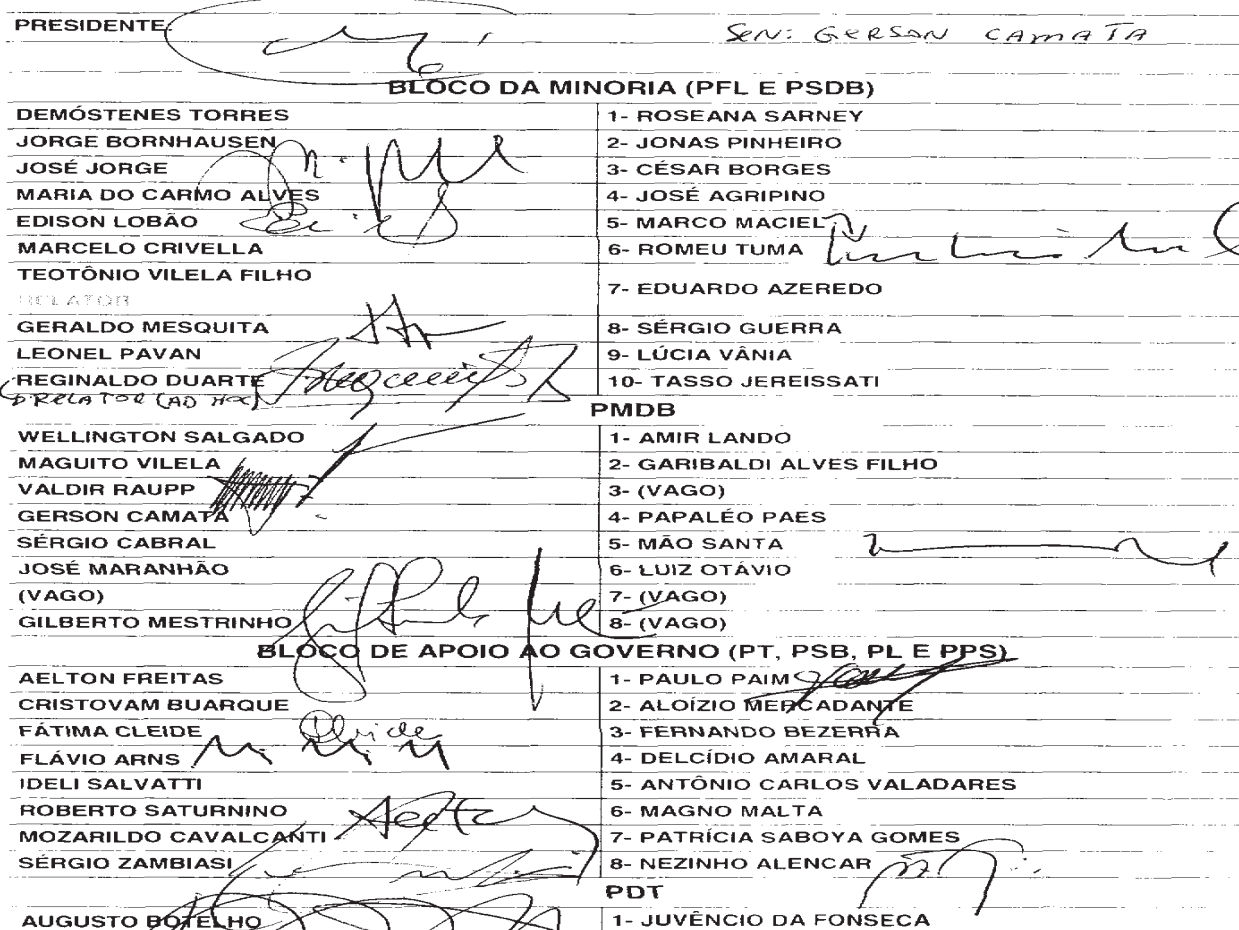 PRESIDENTE: SEN: GERSON CAMATA
BLOCO DA MINORIA (PFL E PSDB)
DEMÓSTENES TORRES 1- ROSEANA SARNEY
JORGE BORNHAUSEN 2- JONAS PINHEIRO
JOSÉ JORGE 3- CÉSAR BORGES
MARIA DO CARMO ALVES 4- JOSÉ AGRIPINO
EDISON LOBÃO 5- MARCO MACIEL
MARCELO CRIVELLA 6- ROMEU TUMA
TEOTÔNIO VILELA FILHO
RELATOR 7- EDUARDO AZEREDO
GERALDO MESQUITA 8- SÉRGIO GUERRA
LEONEL PAVAN 9- LÚCIA VÂNIA
REGINALDO DUARTE 10- TASSO JEREISSATI
RELATOR (AD HOC)
PMDB
WELLINGTON SALGADO 1- AMIR LANDO
MAGUITO VILELA 2- GARIBALDI ALVES FILHO
VALDIR RAUPP 3- (VAGO)
GERSON CAMATA 4- PAPALÉO PAES
SÉRGIO CABRAL 5- MÃO SANTA
JOSÉ MARANHÃO 6- LUIZ OTÁVIO
(VAGO) 7- (VAGO)
GILBERTO MESTRINHO 8- (VAGO)
BLOCO DE APOIO AO GOVERNO (PT, PSB, PL E PPS)
AELTON FREITAS 1- PAULO PAIM
CRISTOVAM BUARQUE 2- ALOÍZIO MERCADANTE
FÁTIMA CLEIDE 3- FERNANDO BEZERRA
FLÁVIO ARNS 4- DELCÍDIO AMARAL
IDELI SALVATTI 5- ANTÔNIO CARLOS VALADARES
ROBERTO SATURNINO 6- MAGNO MALTA
MOZARILDO CAVALCANTI 7- PATRÍCIA SABOYA GOMES
SÉRGIO ZAMBIASI 8- NEZINHO ALENCAR
PDT
AUGUSTO BOTELHO 1- JUVÊNCIO DA FONSECA